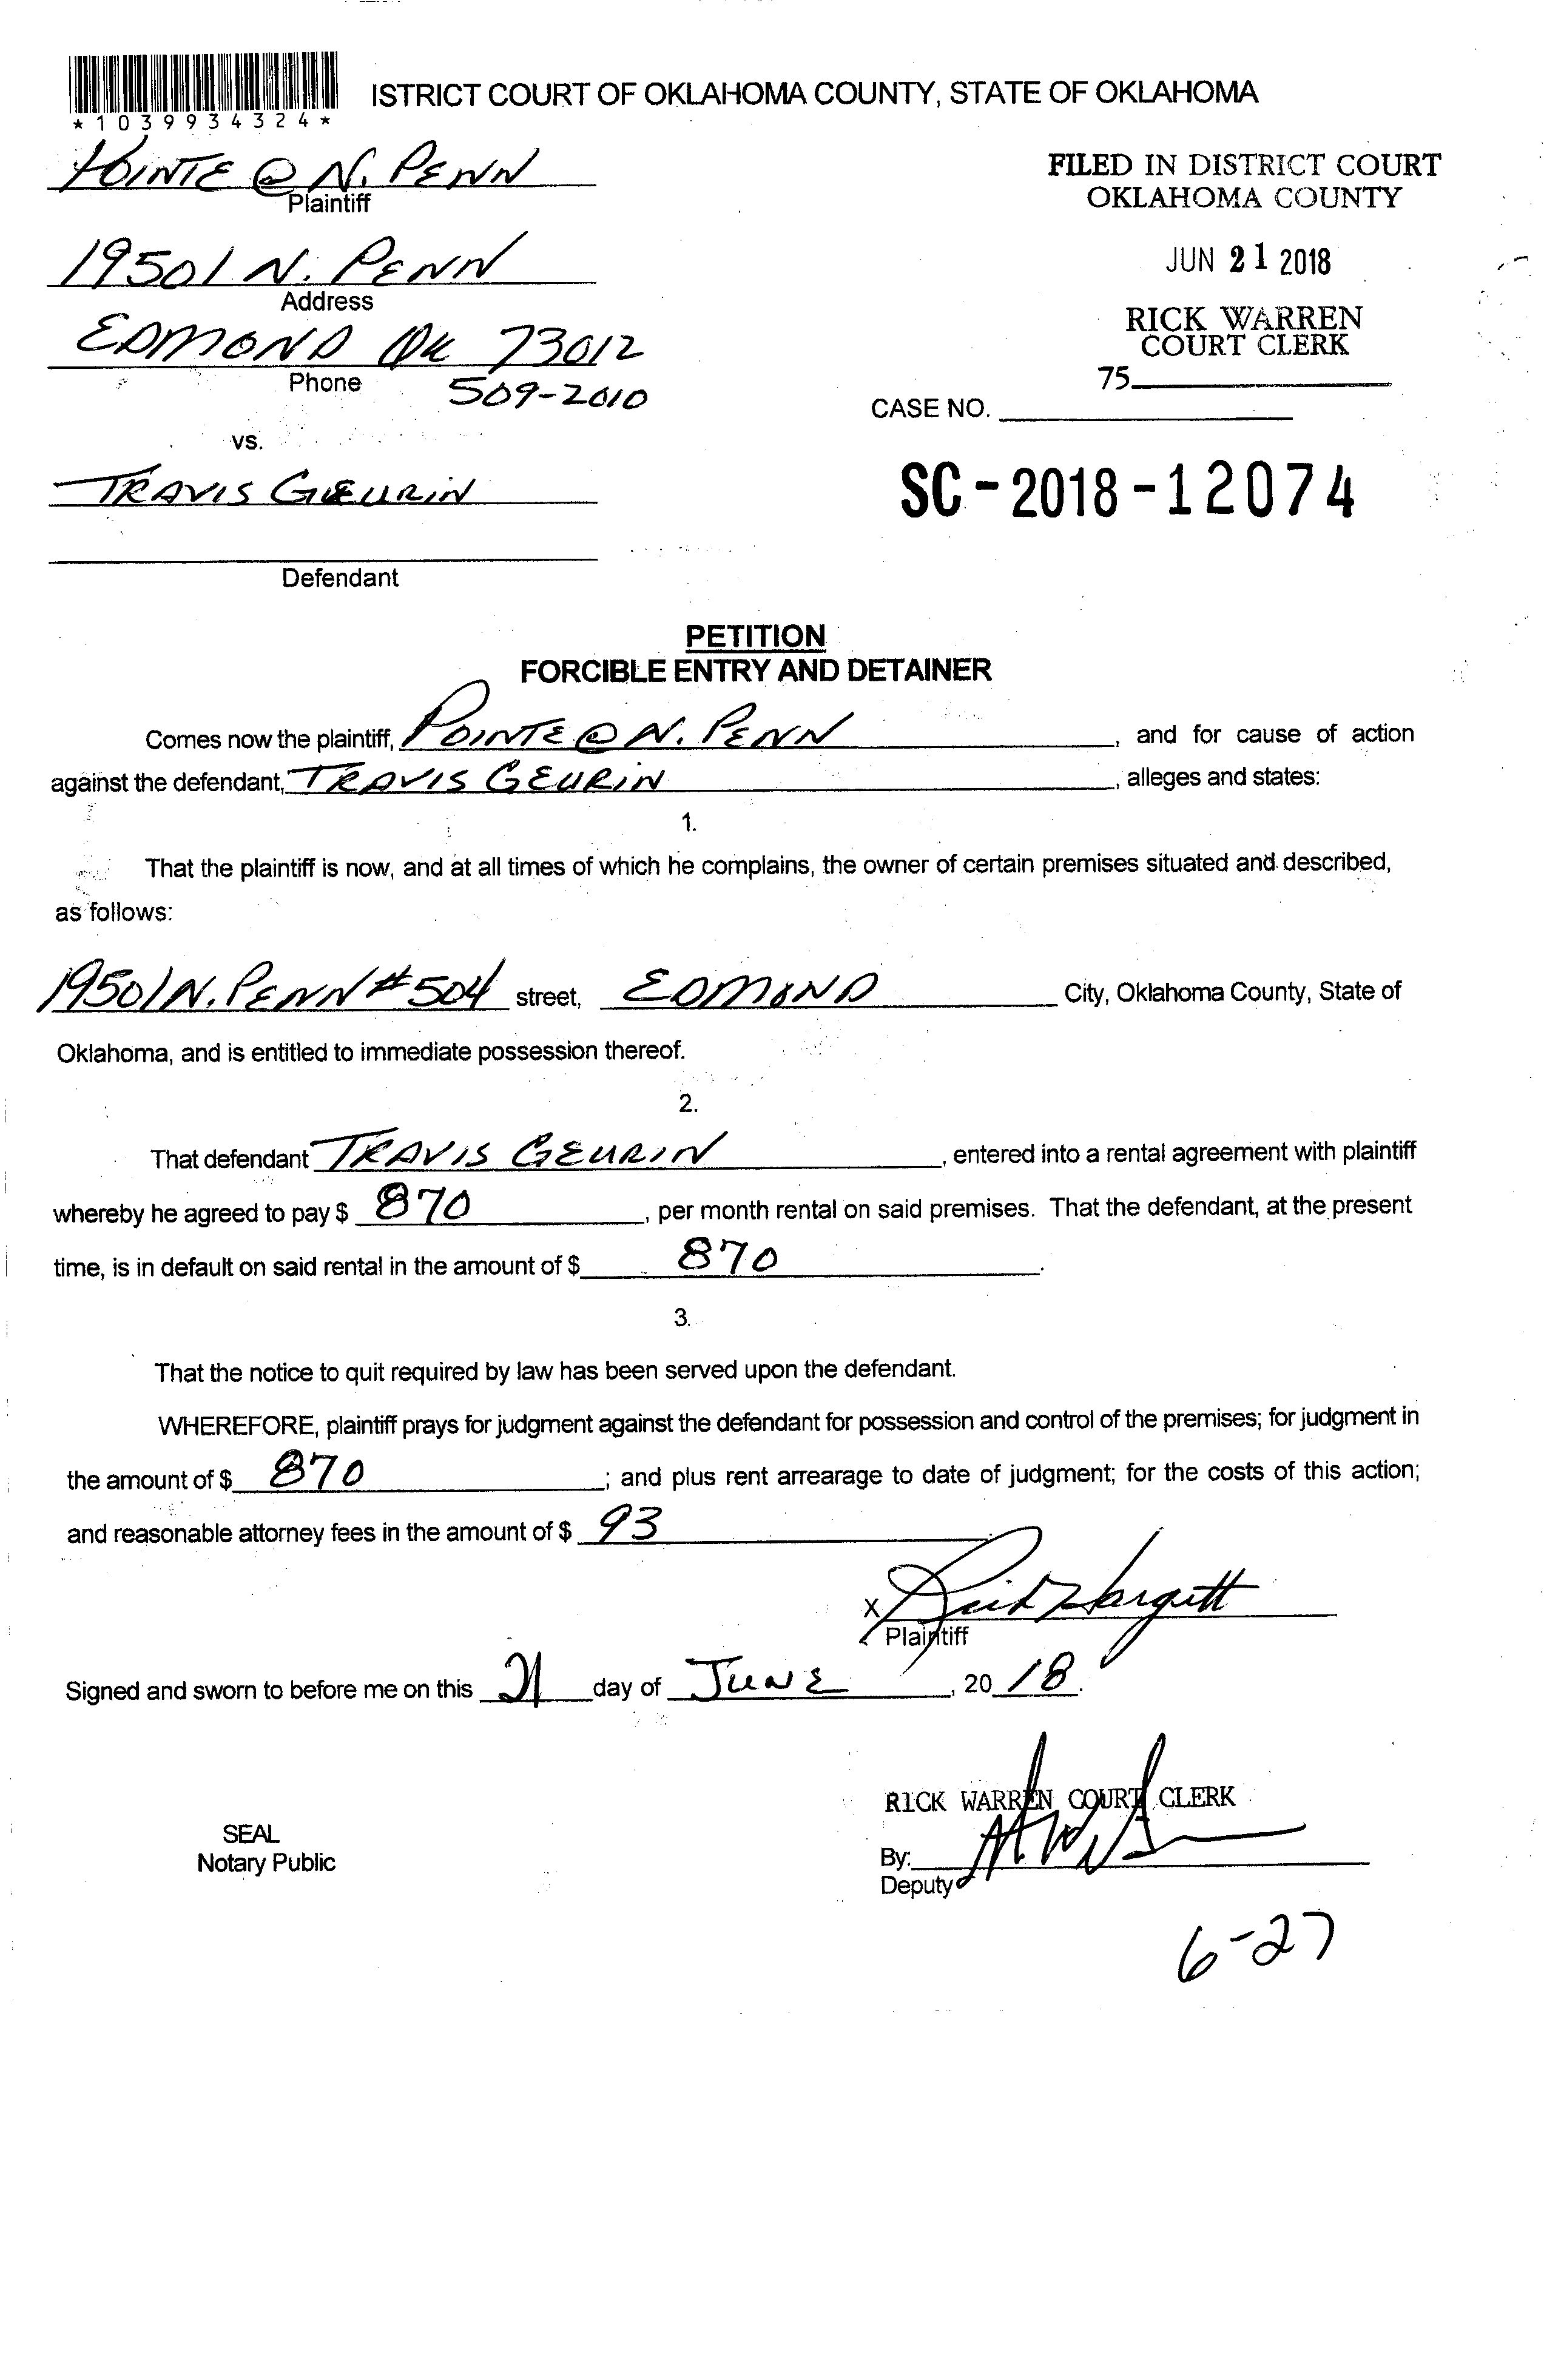 *1039934324*
ISTRICT COURT OF OKLAHOMA COUNTY, STATE OF OKLAHOMA
POINTE @ N. PENN
Plaintiff
FILED IN DISTRICT COURT
OKLAHOMA COUNTY
19501 N. PENN
Address
JUN 21 2018
EDMOND OK 73012
Phone 509-2010
RICK WARREN
COURT CLERK
75
CASE NO.
vs.
TRAVIS GEURIN
SC-2018-12074
Defendant
PETITION
FORCIBLE ENTRY AND DETAINER
Comes now the plaintiff, POINTE @ N. PENN, and for cause of action
against the defendant, TRAVIS GEURIN, alleges and states:
1.
That the plaintiff is now, and at all times of which he complains, the owner of certain premises situated and described,
as follows:
19501 N. PENN #504 street, EDMOND City, Oklahoma County, State of
Oklahoma, and is entitled to immediate possession thereof.
2.
That defendant TRAVIS GEURIN, entered into a rental agreement with plaintiff
whereby he agreed to pay $ 870, per month rental on said premises. That the defendant, at the present
time, is in default on said rental in the amount of $ 870.
3.
That the notice to quit required by law has been served upon the defendant.
WHEREFORE, plaintiff prays for judgment against the defendant for possession and control of the premises; for judgment in
the amount of $ 870; and plus rent arrearage to date of judgment; for the costs of this action;
and reasonable attorney fees in the amount of $ 93
X
Plaintiff
Signed and sworn to before me on this 21 day of JUNE, 20 18.
RICK WARREN COURT CLERK
SEAL
Notary Public
By:
Deputy
6-27